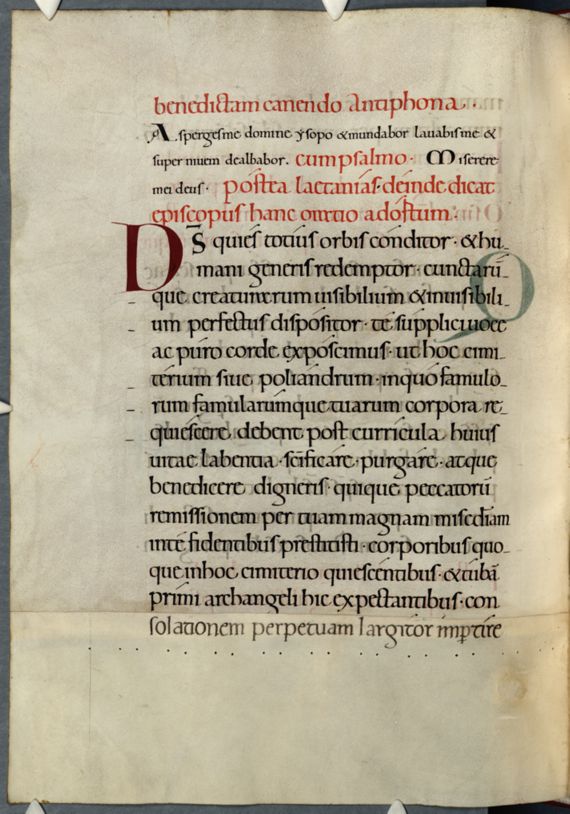 benedictam canendo Antiphona.
Asperges me domine ysopo & mundabor lavabis me &
super nivem dealbabor. cum psalmo. Miserere
mei deus. postea laetanias. deinde dicat
episcopus hanc oratio ad ostum.
D̅s̅ qui es totius orbis conditor. & hu-
mani generis redemptor. cunctarū-
que creaturarum visibilium & invisibili-
um perfectus dispositor. te supplici voce
ac puro corde exposcimus. ut hoc cimi-
terium sive poliandrum. in quo famulo-
rum famularumque tuarum corpora re-
quiescere debent post curricula huius
vitae labentia. sc̄ificare. purgare. atque
benedicere digneris. quique peccatorū
remissionem per tuam magnam misc̄diam
in te fidentibus prestitisti. corporibus quo-
que in hoc cimiterio quiescentibus. & tubā
primi archangeli hic expectantibus. con
solationem perpetuam largitor imp̱tire